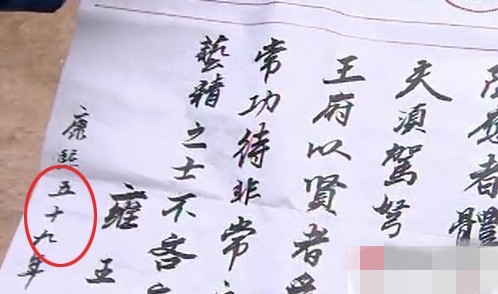 者體
天須駕弩
王府以賢者
常功待非常
藝精之士不吝
雍王
康熙五十九年